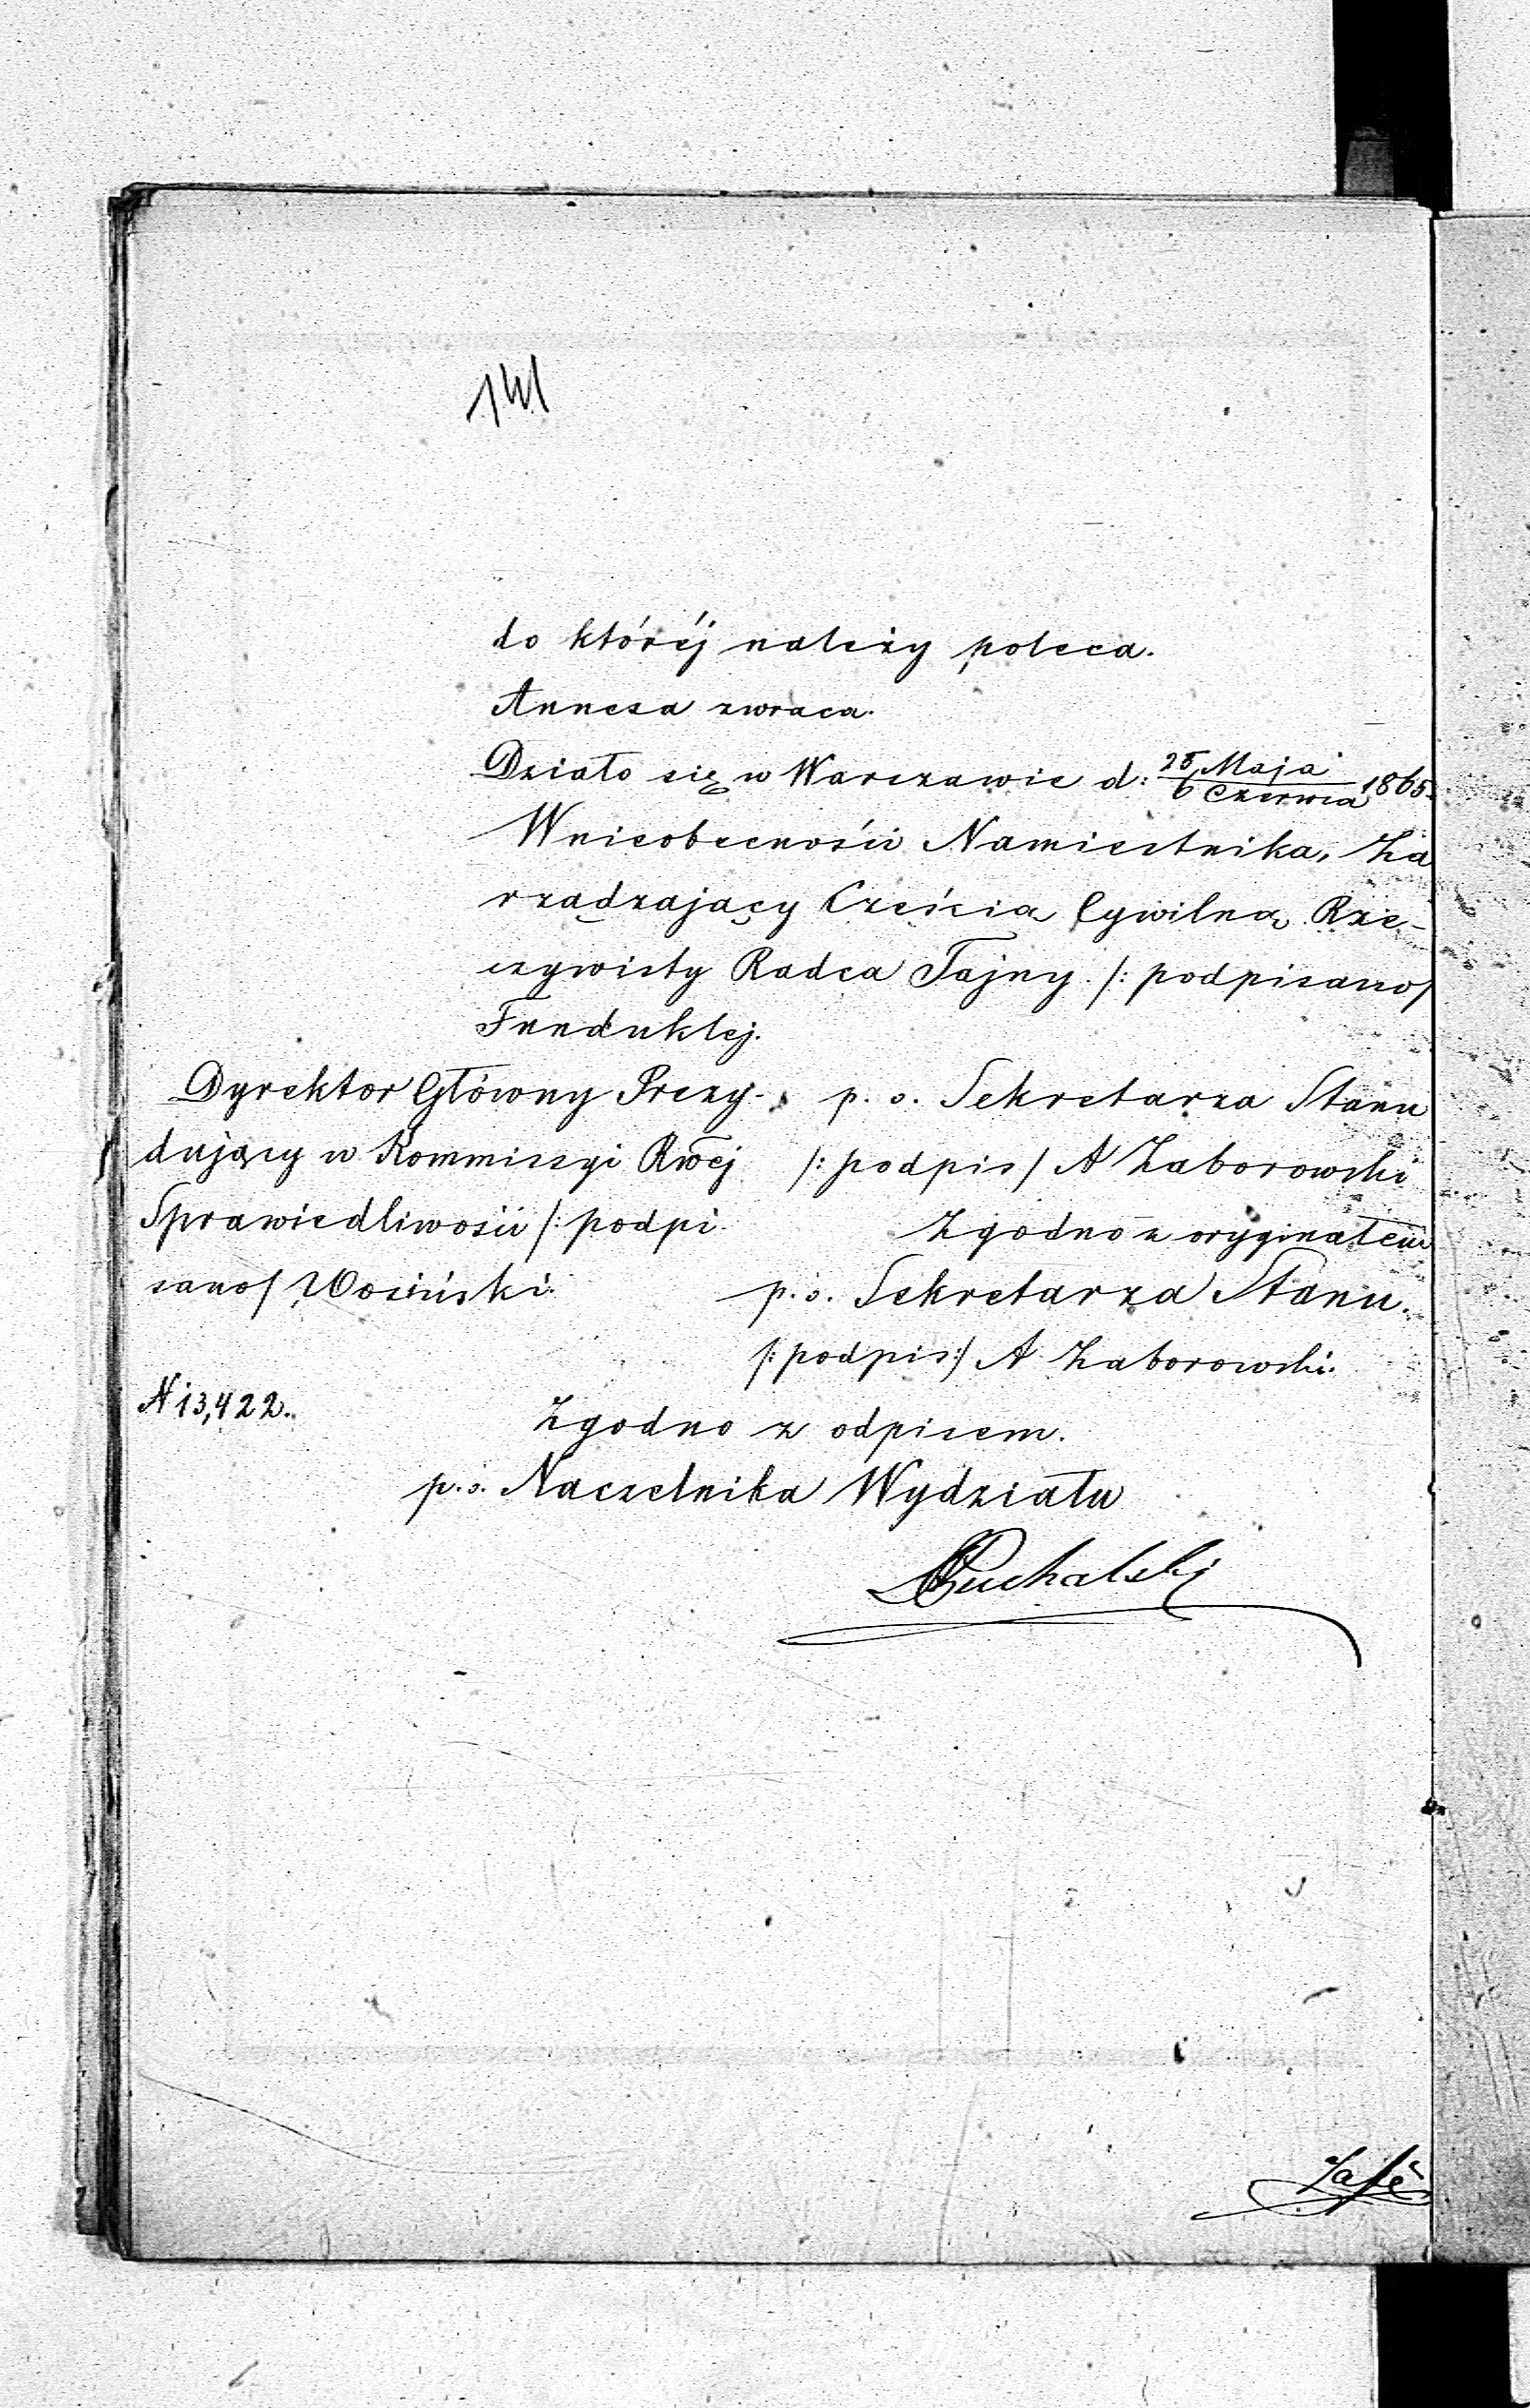 141
do któréj należy poleca.
Annexa zwraca.
Działo się w Warszawie d: 25 Maja / 6 Czerwca 1865.
W nieobecności Namiestnika, Za
rządzający Częścią Cywilną Rze-
czywisty Radca Tajny. /: podpisano/
Funduklej.
Dyrektor Główny Prezy-
dujący w Kommissyi Rwéj
Sprawiedliwości /: podpi
sano/ Wosiński.
p. o. Sekretarza Stanu
/: podpis / A Zaborowski
Zgodno z oryginałem
p. o. Sekretarza Stanu.
/: podpis :/ A Zaborowski.
N 13,422.
Zgodno z odpisem.
p. o. Naczelnika Wydziału
Puchalski